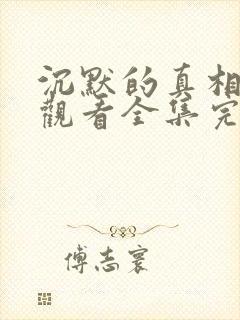 沉默的真相
觀看全集完
傅志寰